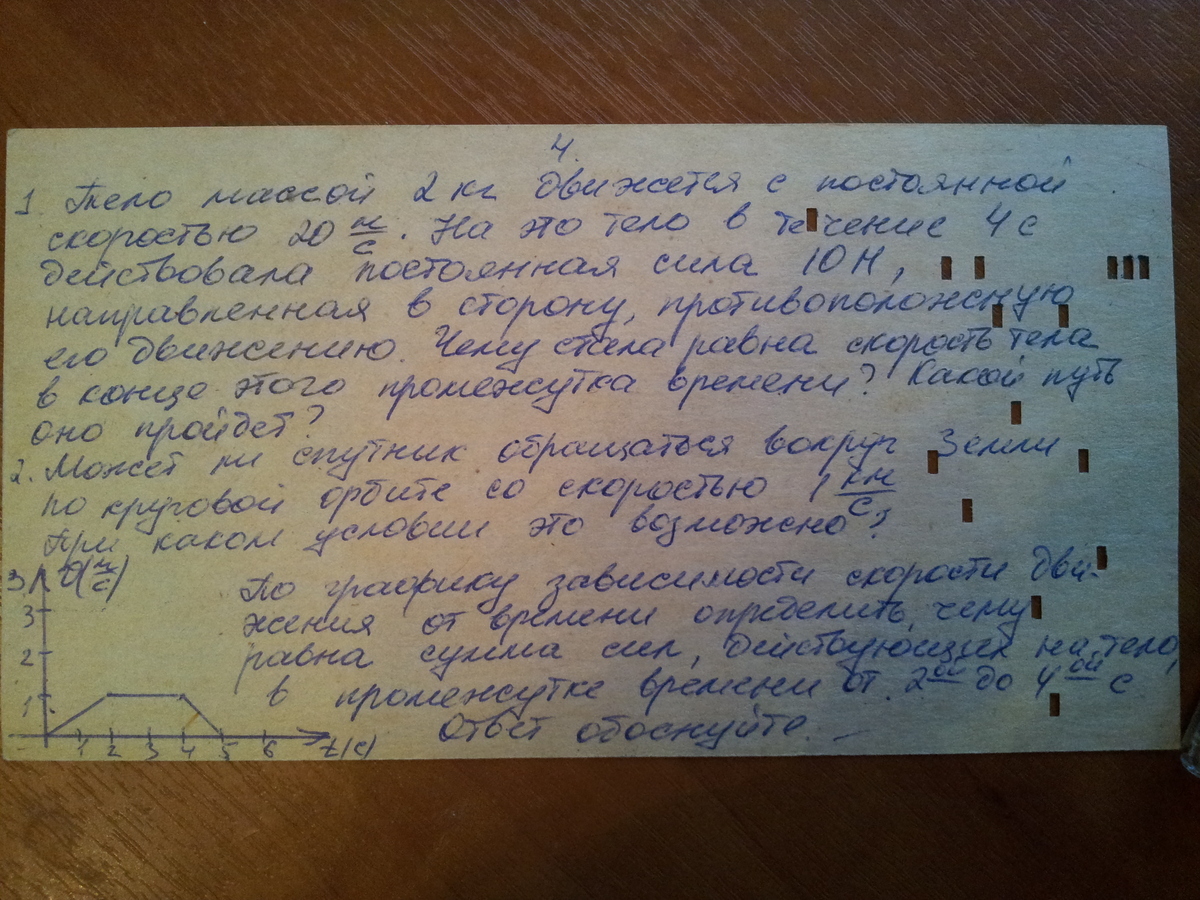 4.
1. Тело массой 2 кг движется с постоянной
скоростью 20 м/с. На это тело в течение 4 с
действовала постоянная сила 10 Н,
направленная в сторону, противоположную
его движению. Чему стала равна скорость тела
в конце этого промежутка времени? Какой путь
оно пройдет?
2. Может ли спутник обращаться вокруг Земли
по круговой орбите со скоростью 1 км/с?
При каком условии это возможно?
3. υ(м/с)
3
2
1
1 2 3 4 5 6 t(с)
По графику зависимости скорости дви-
жения от времени определить, чему
равна сумма сил, действующих на тело,
в промежутке времени от 2ой до 4ой с
Ответ обоснуйте.